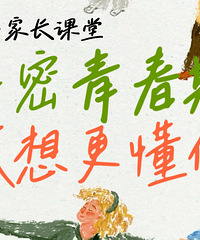 家长课堂
密青春期
我想更懂你